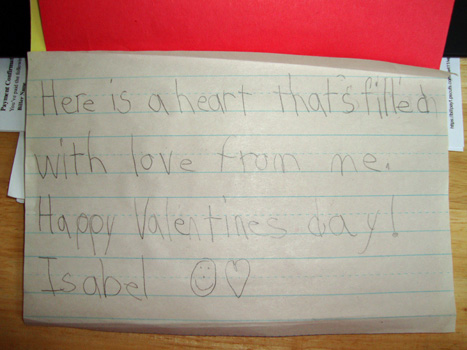 Here is a heart that's filled
with love from me.
Happy Valentines day!
Isabel
Payment Confirm